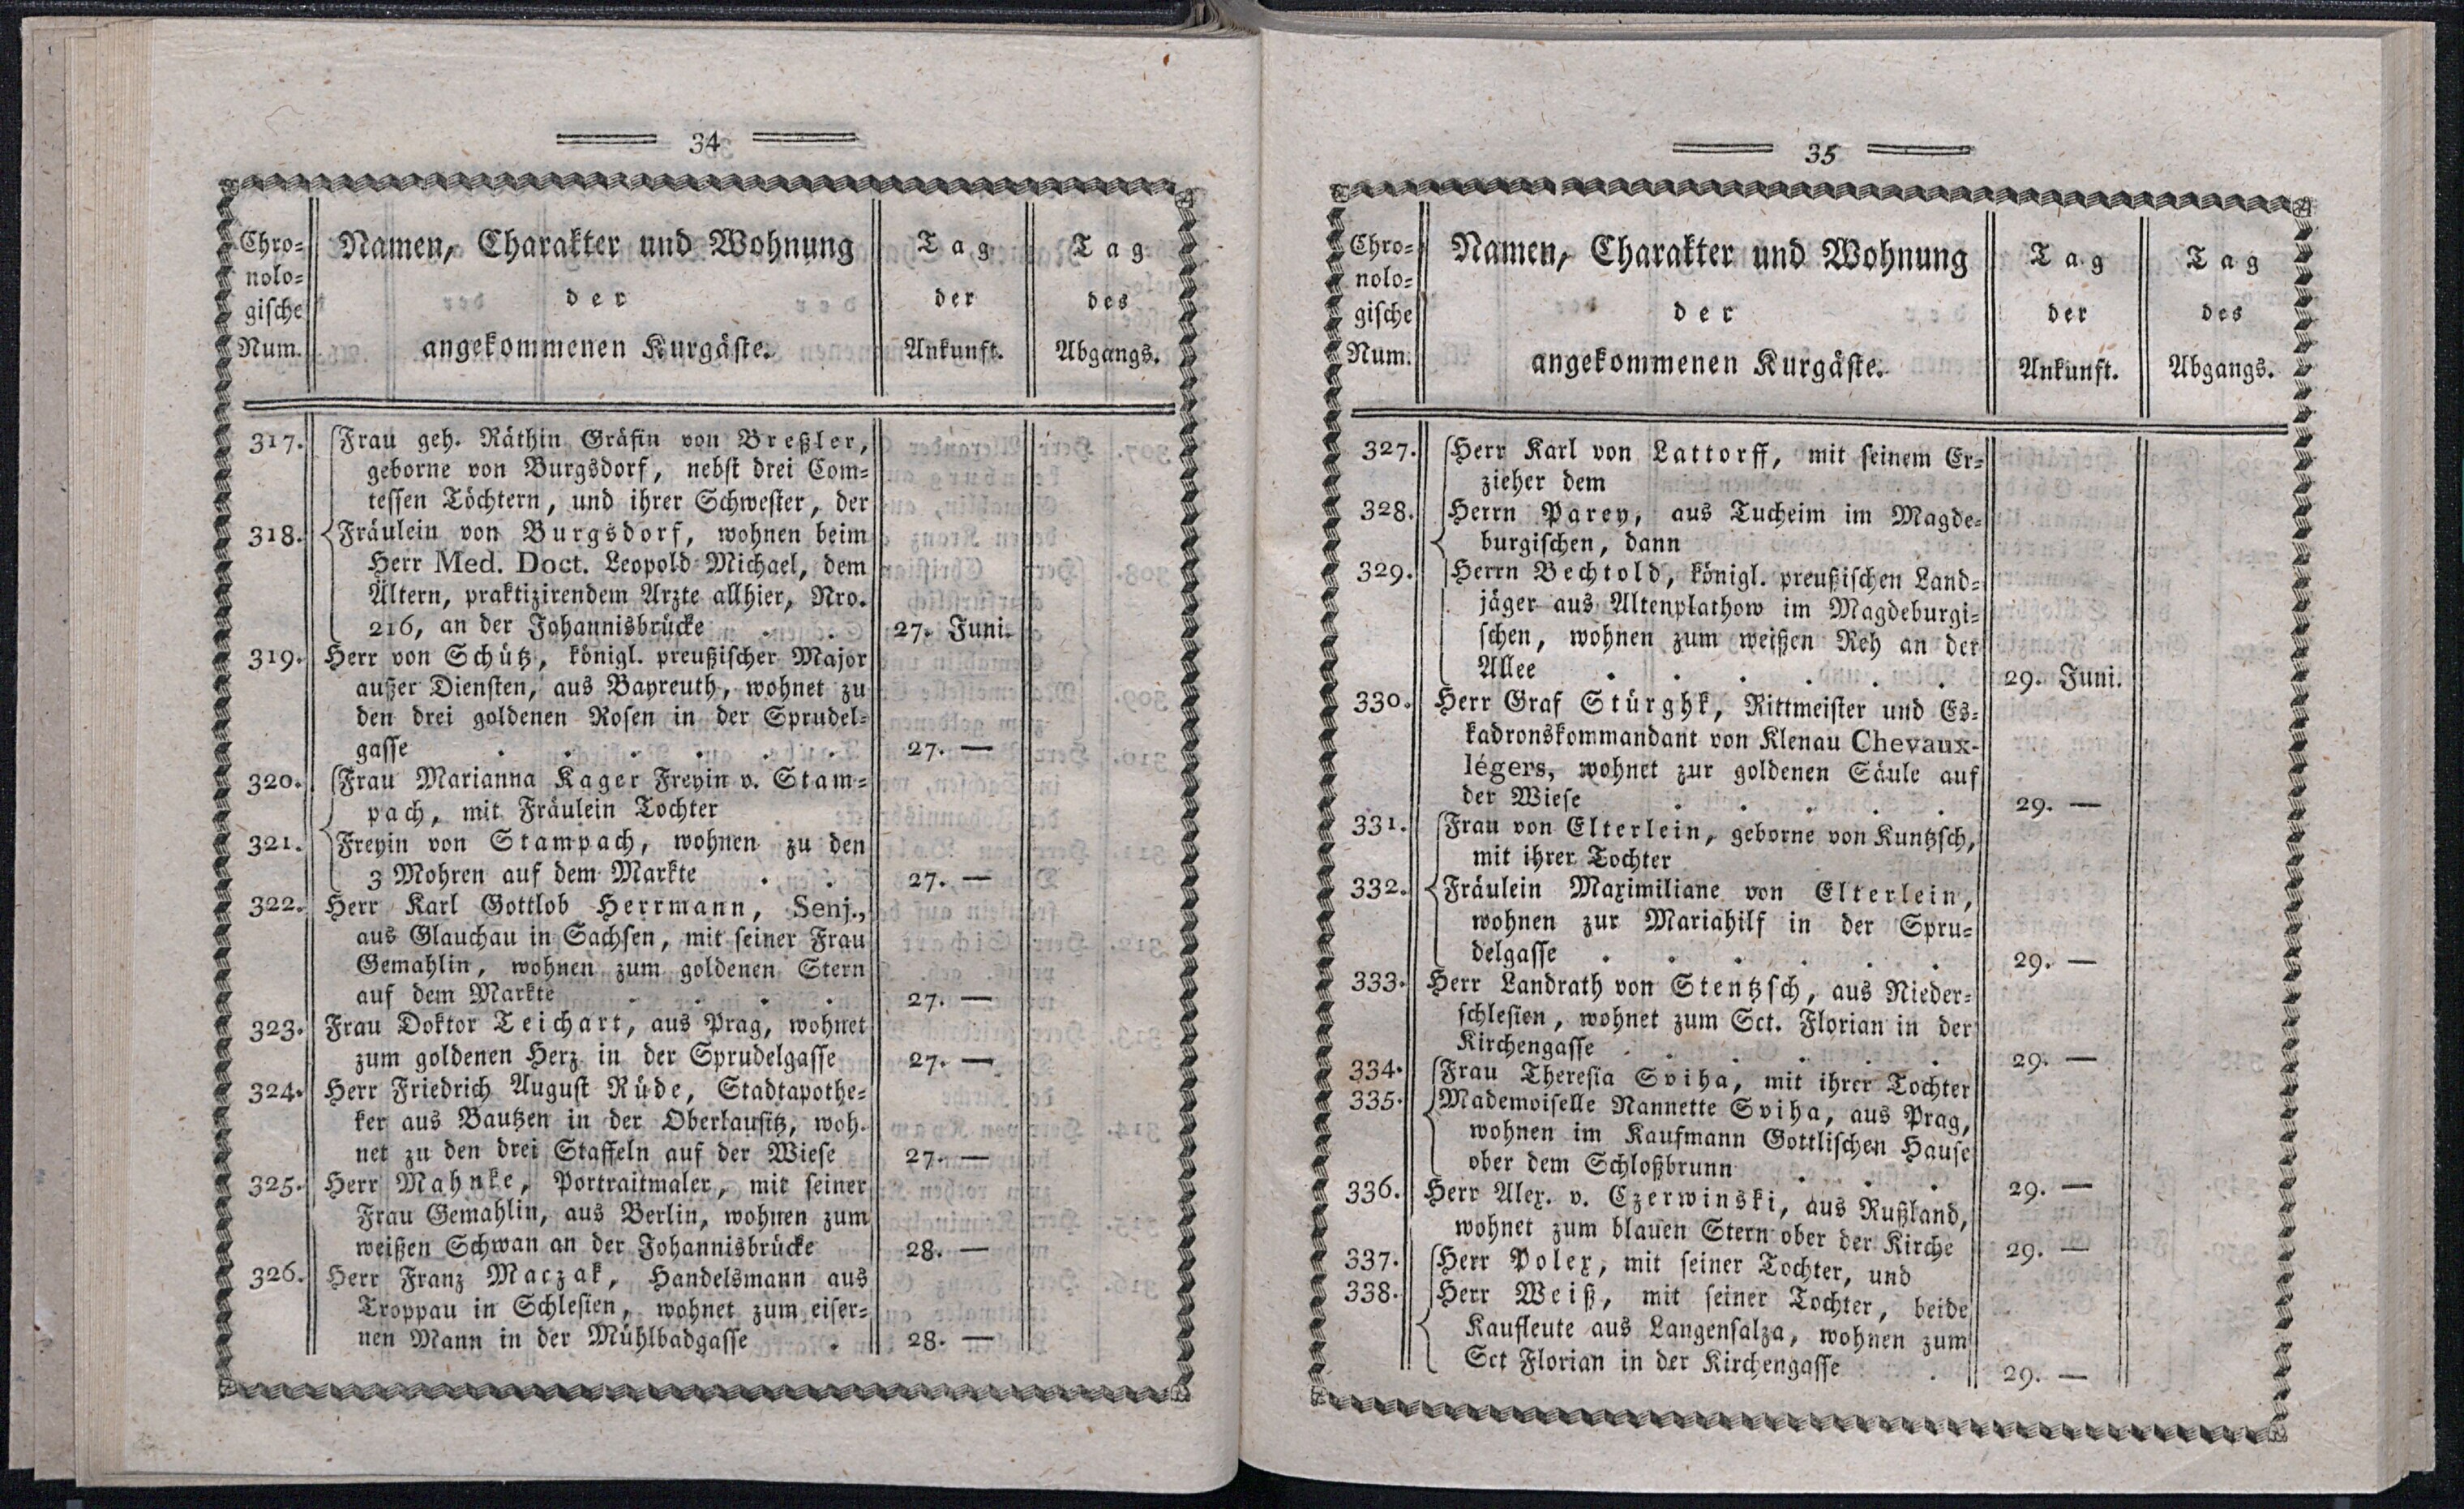 34
Chro-
nolo-
gische
Num.
Namen, Charakter und Wohnung
der
angekommenen Kurgäste.
Tag
der
Ankunft.
Tag
des
Abgangs.
317. Frau geh. Räthin Gräfin von Breßler,
geborne von Burgsdorf, nebst drei Com-
tessen Töchtern, und ihrer Schwester, der
318. Fräulein von Burgsdorf, wohnen beim
Herr Med. Doct. Leopold Michael, dem
Ältern, praktizirendem Arzte allhier, Nro.
216, an der Johannisbrücke . . 27. Juni.
319. Herr von Schütz, königl. preußischer Major
außer Diensten, aus Bayreuth, wohnet zu
den drei goldenen Rosen in der Sprudel-
gasse . . . . . . 27. —
320. Frau Marianna Kager Freyin v. Stam-
pach, mit Fräulein Tochter
321. Freyin von Stampach, wohnen zu den
3 Mohren auf dem Markte . . 27. —
322. Herr Karl Gottlob Herrmann, Senj.,
aus Glauchau in Sachsen, mit seiner Frau
Gemahlin, wohnen zum goldenen Stern
auf dem Markte . . . . 27. —
323. Frau Doktor Teichart, aus Prag, wohnet
zum goldenen Herz in der Sprudelgasse 27. —
324. Herr Friedrich August Rüde, Stadtapothe-
ker aus Bautzen in der Oberlausitz, woh-
net zu den drei Staffeln auf der Wiese 27. —
325. Herr Mahnke, Portraitmaler, mit seiner
Frau Gemahlin, aus Berlin, wohnen zum
weißen Schwan an der Johannisbrücke 28. —
326. Herr Franz Maczak, Handelsmann aus
Troppau in Schlesien, wohnet zum eiser-
nen Mann in der Mühlbadgasse . 28. —
35
Chro-
nolo-
gische
Num.
Namen, Charakter und Wohnung
der
angekommenen Kurgäste.
Tag
der
Ankunft.
Tag
des
Abgangs.
327. Herr Karl von Lattorff, mit seinem Er-
zieher dem
328. Herrn Parey, aus Tucheim im Magde-
burgischen, dann
329. Herrn Bechtold, königl. preußischen Land-
jäger aus Altenplathow im Magdeburgi-
schen, wohnen zum weißen Reh an der
Allee . . . . . . 29. Juni.
330. Herr Graf Stürghk, Rittmeister und Es-
kadronskommandant von Klenau Chevaux-
légers, wohnet zur goldenen Säule auf
der Wiese . . . . . 29. —
331. Frau von Elterlein, geborne von Kuntzsch,
mit ihrer Tochter
332. Fräulein Maximiliane von Elterlein,
wohnen zur Mariahilf in der Spru-
delgasse . . . . . . 29. —
333. Herr Landrath von Stentzsch, aus Nieder-
schlesien, wohnet zum Sct. Florian in der
Kirchengasse . . . . . 29. —
334. Frau Theresia Sviha, mit ihrer Tochter
335. Mademoiselle Nannette Sviha, aus Prag,
wohnen im Kaufmann Gottlischen Hause
ober dem Schloßbrunn . . . 29. —
336. Herr Alex. v. Czerwinski, aus Rußland,
wohnet zum blauen Stern ober der Kirche 29. —
337. Herr Polex, mit seiner Tochter, und
338. Herr Weiß, mit seiner Tochter, beide
Kaufleute aus Langensalza, wohnen zum
Sct Florian in der Kirchengasse . 29. —